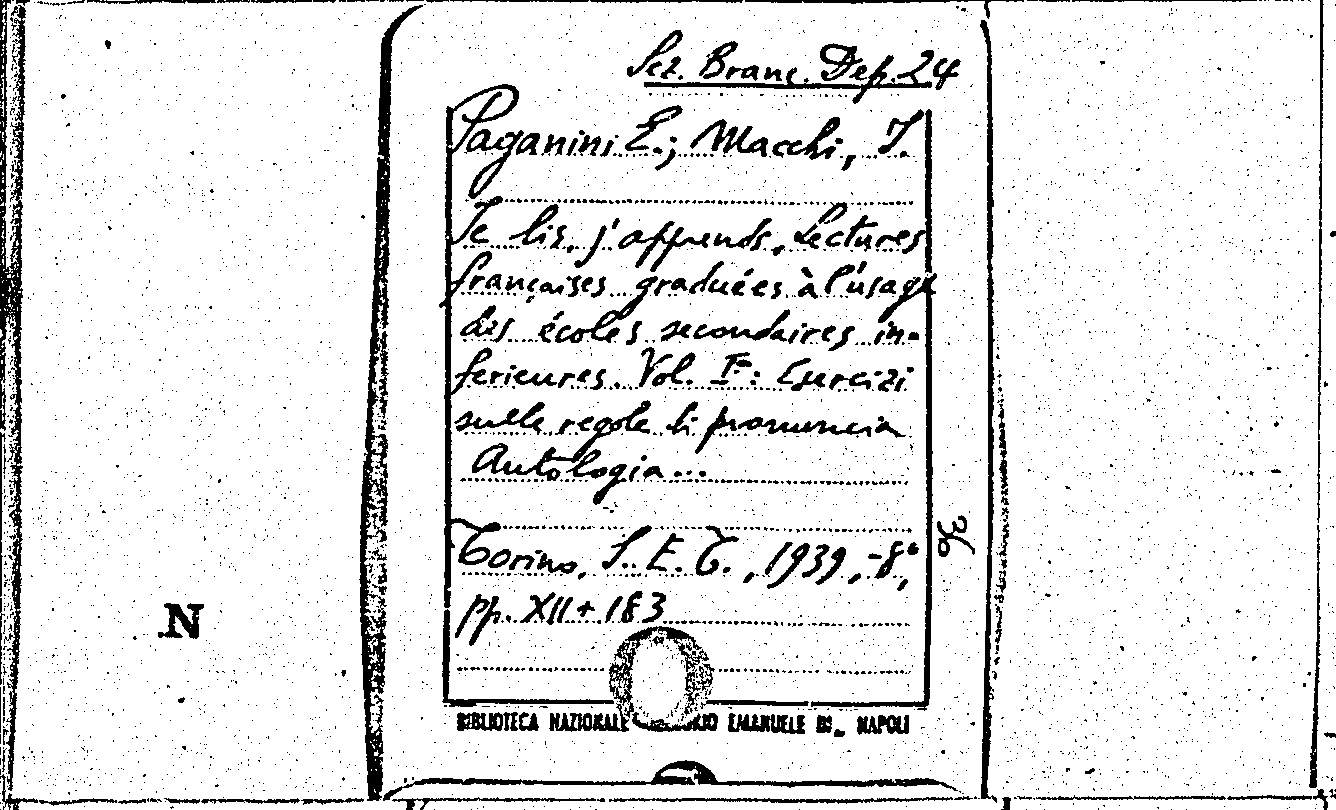 Sez. Branc. Dep. 24
Paganini E.; Macchi, I.
Je lis, j'apprends, Lectures
françaises graduées à l'usage
des écoles secondaires in-
ferieures. Vol. I°: Esercizi
sulle regole di pronuncia
Antologia...
Torino, S. E. T., 1939, -8°,
pp. XII + 183
36
N
BIBLIOTECA NAZIONALE EMANUELE III_ NAPOLI